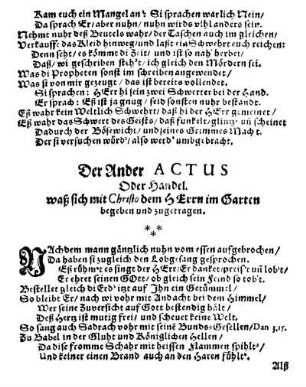 Kam euch ein Mangel an? Si sprachen warlich Nein/
Da sprach Er; aber nuhn/ nuhn wirds vihl anders sein.
Nehmt nuhr deß Beutels wahr/ der Taschen auch im gleichen/
Verkaufft das Kleid hinweg und laßt ein Schwehrt euch reichen:
Denn seht/ es kömmt di Zeit/ und ist so nah herbei/
Daß/ wi geschriben steh't/ ich gleich den Mördern sei.
Was di Propheten sonst im schreiben angewendet/
Was si von mir gezeugt/ das ist bereits vollendet.
Si sprachen: HErr hi sein zwei Schwerter bei der Hand.
Er sprach: Eß ist ja gnug/ seid sonsten nuhr bestandt.
Eß wahr kein Weltlich Schwehrt/ daß hi der HErr gemeinet/
Eß wahr das Schwert des Geists/ daß funkelt/ glintzt uñ scheinet
Dadurch der Bösewicht/ und seines Grimmes Macht
Der si verschlingen würd'/ also werd' umbgebracht.
Der Ander ACTUS
Oder Handel.
waß sich mit Christo dem HErrn im Garten
begeben und zugetragen.
***
NAchdem mann gäntzlich nuhn vom essen aufgebrochen/
Da haben si zugleich den Lobgesang gesprochen.
Eß rühmt es singt der HErr/ Er danket/ preist uñ lob't/
Er ehret seinen GOtt/ ob gleich sein Feind so tob't.
Bestellet gleich di Erd' itzt auf Jhn ein Getümmel/
So bleibt Er/ nach wi vohr mit Andacht bei dem Himmel/
Wer seine Zuversicht auf Gott bestendig hält/
Deß Herz ist mutig frei/ und scheuet keine Welt.
So sang auch Sadrach vohr mit seinē Bunds-Gesellen/ Dan 3,15.
Zu Babel in der Gluht und Königlichen Hellen/
Da dise fromme Schahr mit heissen Flammen spihlt/
Und keiner einen Brand auch an den Haren fühlt.
Alß